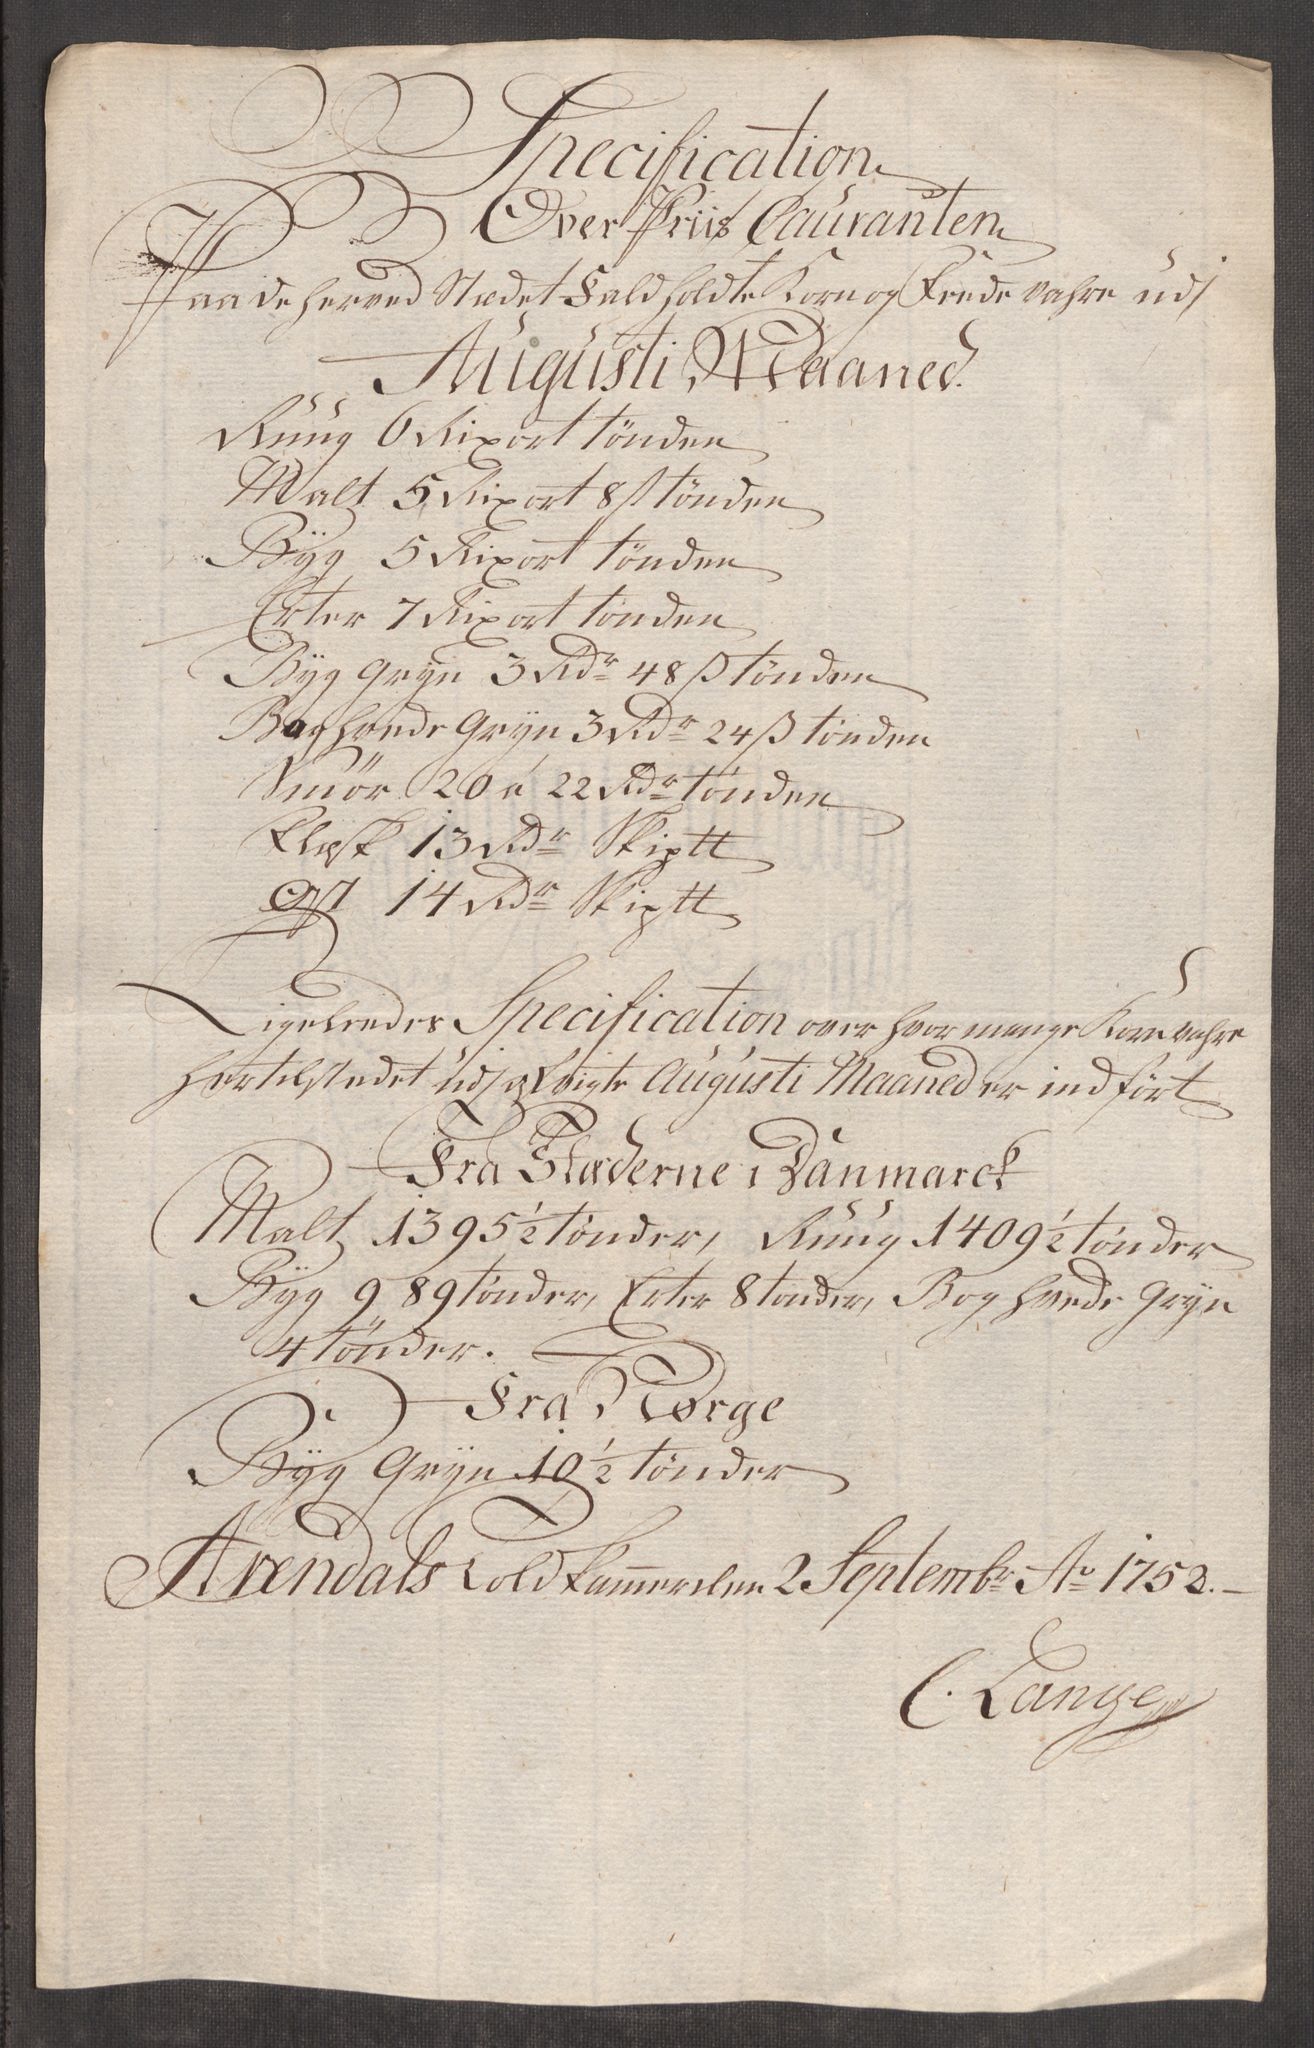 Specification
Over Priis Couranten
Paa de herved Stædet Faldholdte Korn og Fede vahre udj
Augusti Maaned.
Rüüg 6 Rixort tønden
Malt 5 Rixort 8 ß tønden
Byg 5 Rixort tønden
Erter 7 Rixort tønden
Byg Gryn 3 Rdr 48 ß tønden
Boghvede Gryn 3 Rdr 24 ß tønden
Smör 20 á 22 Rdr tønden
Flæsk 13 Rdr Skiptt
Ost 14 Rdr Skiptt
Ligeleedes Specification over hvor mange Korn vahre
hertil stædet udj Augusti Maaned er indført
Fra Stæderne i Danmarck
Malt 1395 ½ tønder, Rüüg 1409 ½ tønder
Byg 989 tønder, Erter 8 tønder, Boghvede Gryn
4 tønder.
Fra Norge
Byg Gryn 10 ½ tønder
Arendals Told Kammer den 2 Septembr Ao 1752.
C. Lange